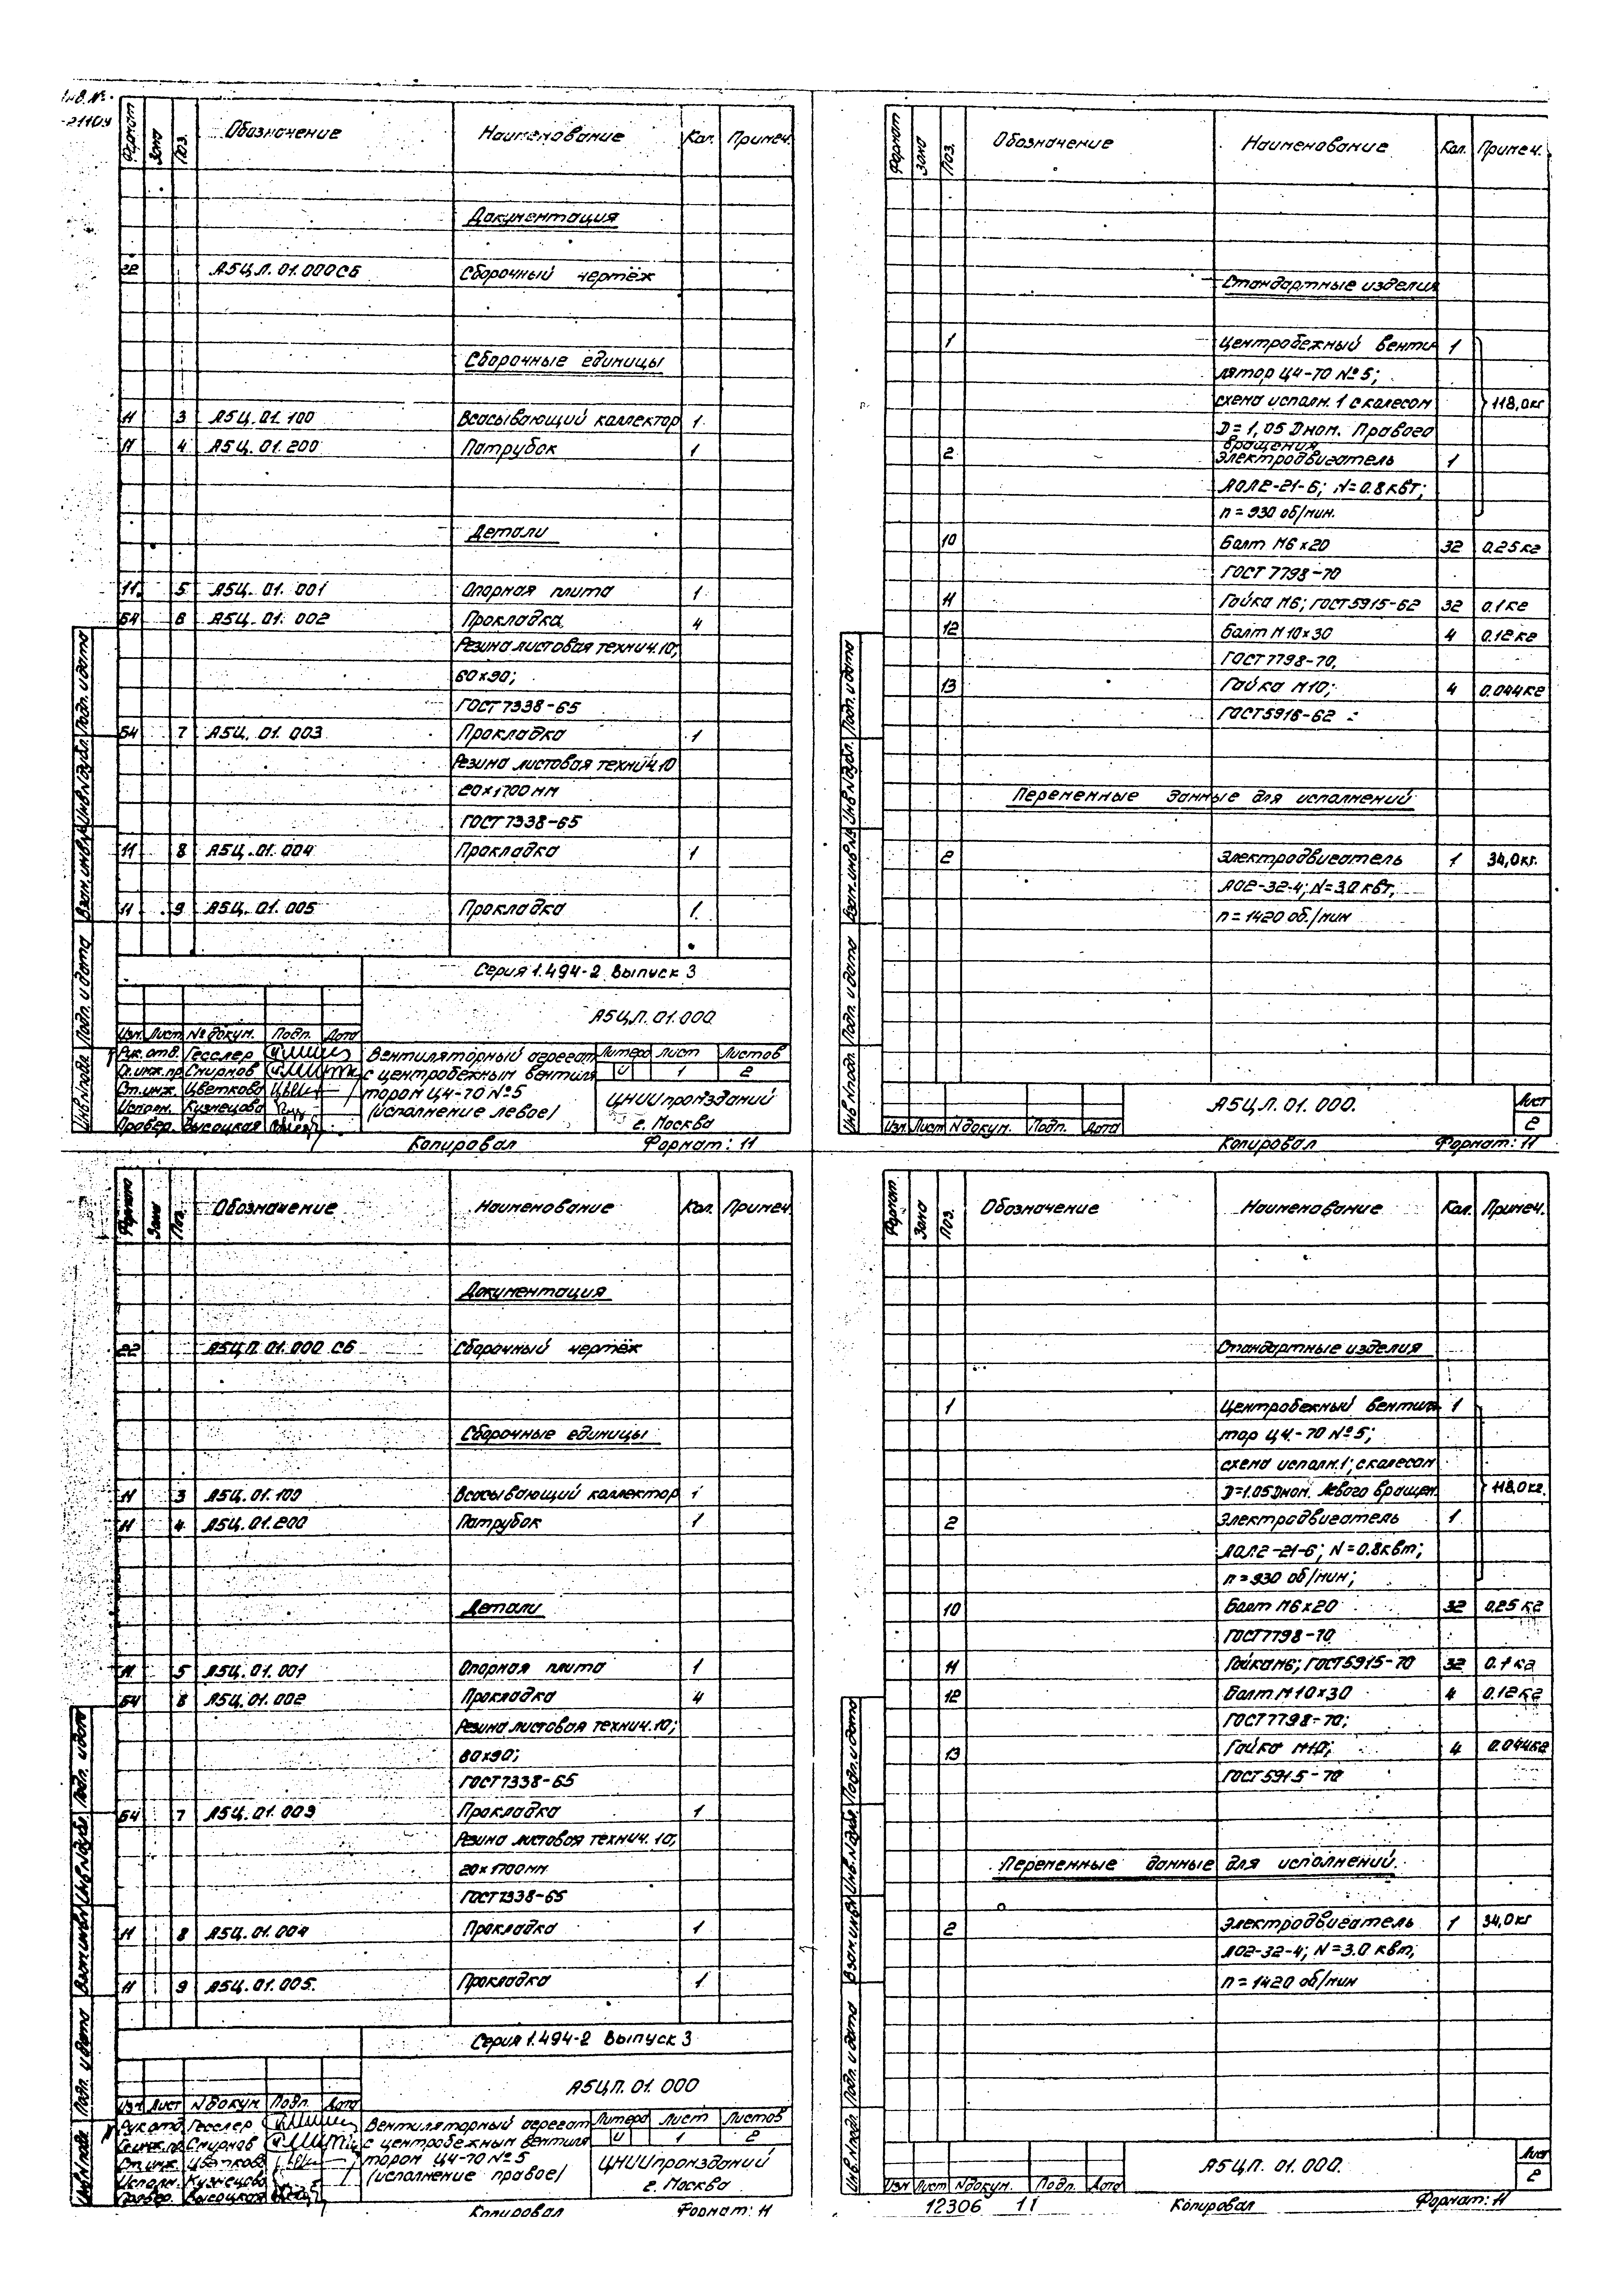 Инв. №
-21104
Формат Зона Поз. Обозначение Наименование Кол. Примеч.
Документация
22 А5ЦЛ.01.000СБ Сборочный чертёж
Сборочные единицы
11 3 А5Ц.01.100 Всасывающий коллектор 1
11 4 А5Ц.01.200 Патрубок 1
Детали
11 5 А5Ц.01.001 Опорная плита 1
БЧ 8 А5Ц.01.002 Прокладка 4
Резина листовая технич.10;
60х90;
ГОСТ 7338-65
БЧ 7 А5Ц.01.003 Прокладка 1
Резина листовая технич.10
20х1700мм
ГОСТ 7338-65
11 8 А5Ц.01.004 Прокладка 1
11 9 А5Ц.01.005 Прокладка 1
Серия 1.494-2 Выпуск 3
А5ЦЛ.01.000
Изм. Лист № докум. Подп. Дата
Рук.отд. Гесслер
Гл.инж.пр Смирнов
Ст.инж. Цветкова
Исполн. Кузнецова
Провер. Высоцкая
Вентиляторный агрегат
с центробежным вентиля
тором Ц4-70 №5
(исполнение левое)
Литера Лист Листов
И 1 2
ЦНИИпромзданий
г. Москва
Копировал Формат: 11
Инв.№подл. Подп. и дата Взам.инв.№ Инв.№дубл. Подп. и дата
Формат Зона Поз. Обозначение Наименование Кол. Примеч.
Стандартные изделия
1 Центробежный венти 1
лятор Ц4-70 №5;
схема исполн. 1 с колесом 118,0кг
D=1,05 Dном. Правого
вращения
2 Электродвигатель 1
АОЛ2-21-6; N=0.8квт;
n=930 об/мин.
10 Болт М6х20 32 0.25кг
ГОСТ 7798-70
11 Гайка М6; ГОСТ5915-62 32 0.1кг
12 Болт М10х30 4 0.12кг
ГОСТ7798-70,
13 Гайка М10; 4 0.044кг
ГОСТ5916-62
Переменные данные для исполнений
2 Электродвигатель 1 34,0кг.
АО2-32-4; N=3.0квт,
n=1420 об./мин
А5ЦЛ.01.000.
Лист
2
Изм. Лист № докум. Подп. Дата
Копировал Формат: 11
Инв.№подл. Подп. и дата Взам.инв.№ Инв.№дубл. Подп. и дата
Формат Зона Поз. Обозначение Наименование Кол. Примеч.
Документация
22 А5ЦП.01.000 СБ Сборочный чертёж
Сборочные единицы
11 3 А5Ц.01.100 Всасывающий коллектор 1
11 4 А5Ц.01.200 Патрубок 1
Детали
11 5 А5Ц.01.001 Опорная плита 1
БЧ 8 А5Ц.01.002 Прокладка 4
Резина листовая технич.10;
80х90;
ГОСТ7338-65
БЧ 7 А5Ц.01.003 Прокладка 1
Резина листовая технич.10,
20х1700мм
ГОСТ7338-65
11 8 А5Ц.01.004 Прокладка 1
11 9 А5Ц.01.005. Прокладка 1
Серия 1.494-2 Выпуск 3
А5ЦП.01.000
Изм Лист № докум Подп. Дата
Рук.отд. Гесслер
Гл.инж.пр. Смирнов
Ст.инж. Цветкова
Исполн. Кузнецова
Провер. Высоцкая
Вентиляторный агрегат
с центробежным вентиля
тором Ц4-70 №5
(исполнение правое)
Литера Лист Листов
И 1 2
ЦНИИпромзданий
г. Москва
Копировал Формат: 11
Инв.№подл. Подп. и дата Взам.инв.№ Инв.№дубл. Подп. и дата
Формат Зона Поз. Обозначение Наименование Кол. Примеч.
Стандартные изделия
1 Центробежный вентиля 1
тор Ц4-70 №5;
схема исполн.1; с колесом
D=1.05Dном. Левого вращен. 118,0кг.
2 Электродвигатель 1
АОЛ2-21-6; N=0.8квт;
n=930 об/мин;
10 Болт М6х20 32 0.25 кг
ГОСТ7798-70
11 Гайка М6; ГОСТ5915-70 32 0.1 кг
12 Болт М10х30 4 0.12 кг
ГОСТ7798-70;
13 Гайка М10; 4 0.044кг
ГОСТ5915-70
Переменные данные для исполнений.
2 Электродвигатель 1 34,0кг
АО2-32-4; N=3.0 квт;
n=1420 об/мин
А5ЦП.01.000.
Лист
2
Изм Лист № докум. Подп. Дата
12306 11 Копировал Формат: 11
Инв.№подл. Подп. и дата Взам.инв.№ Инв.№дубл. Подп. и дата